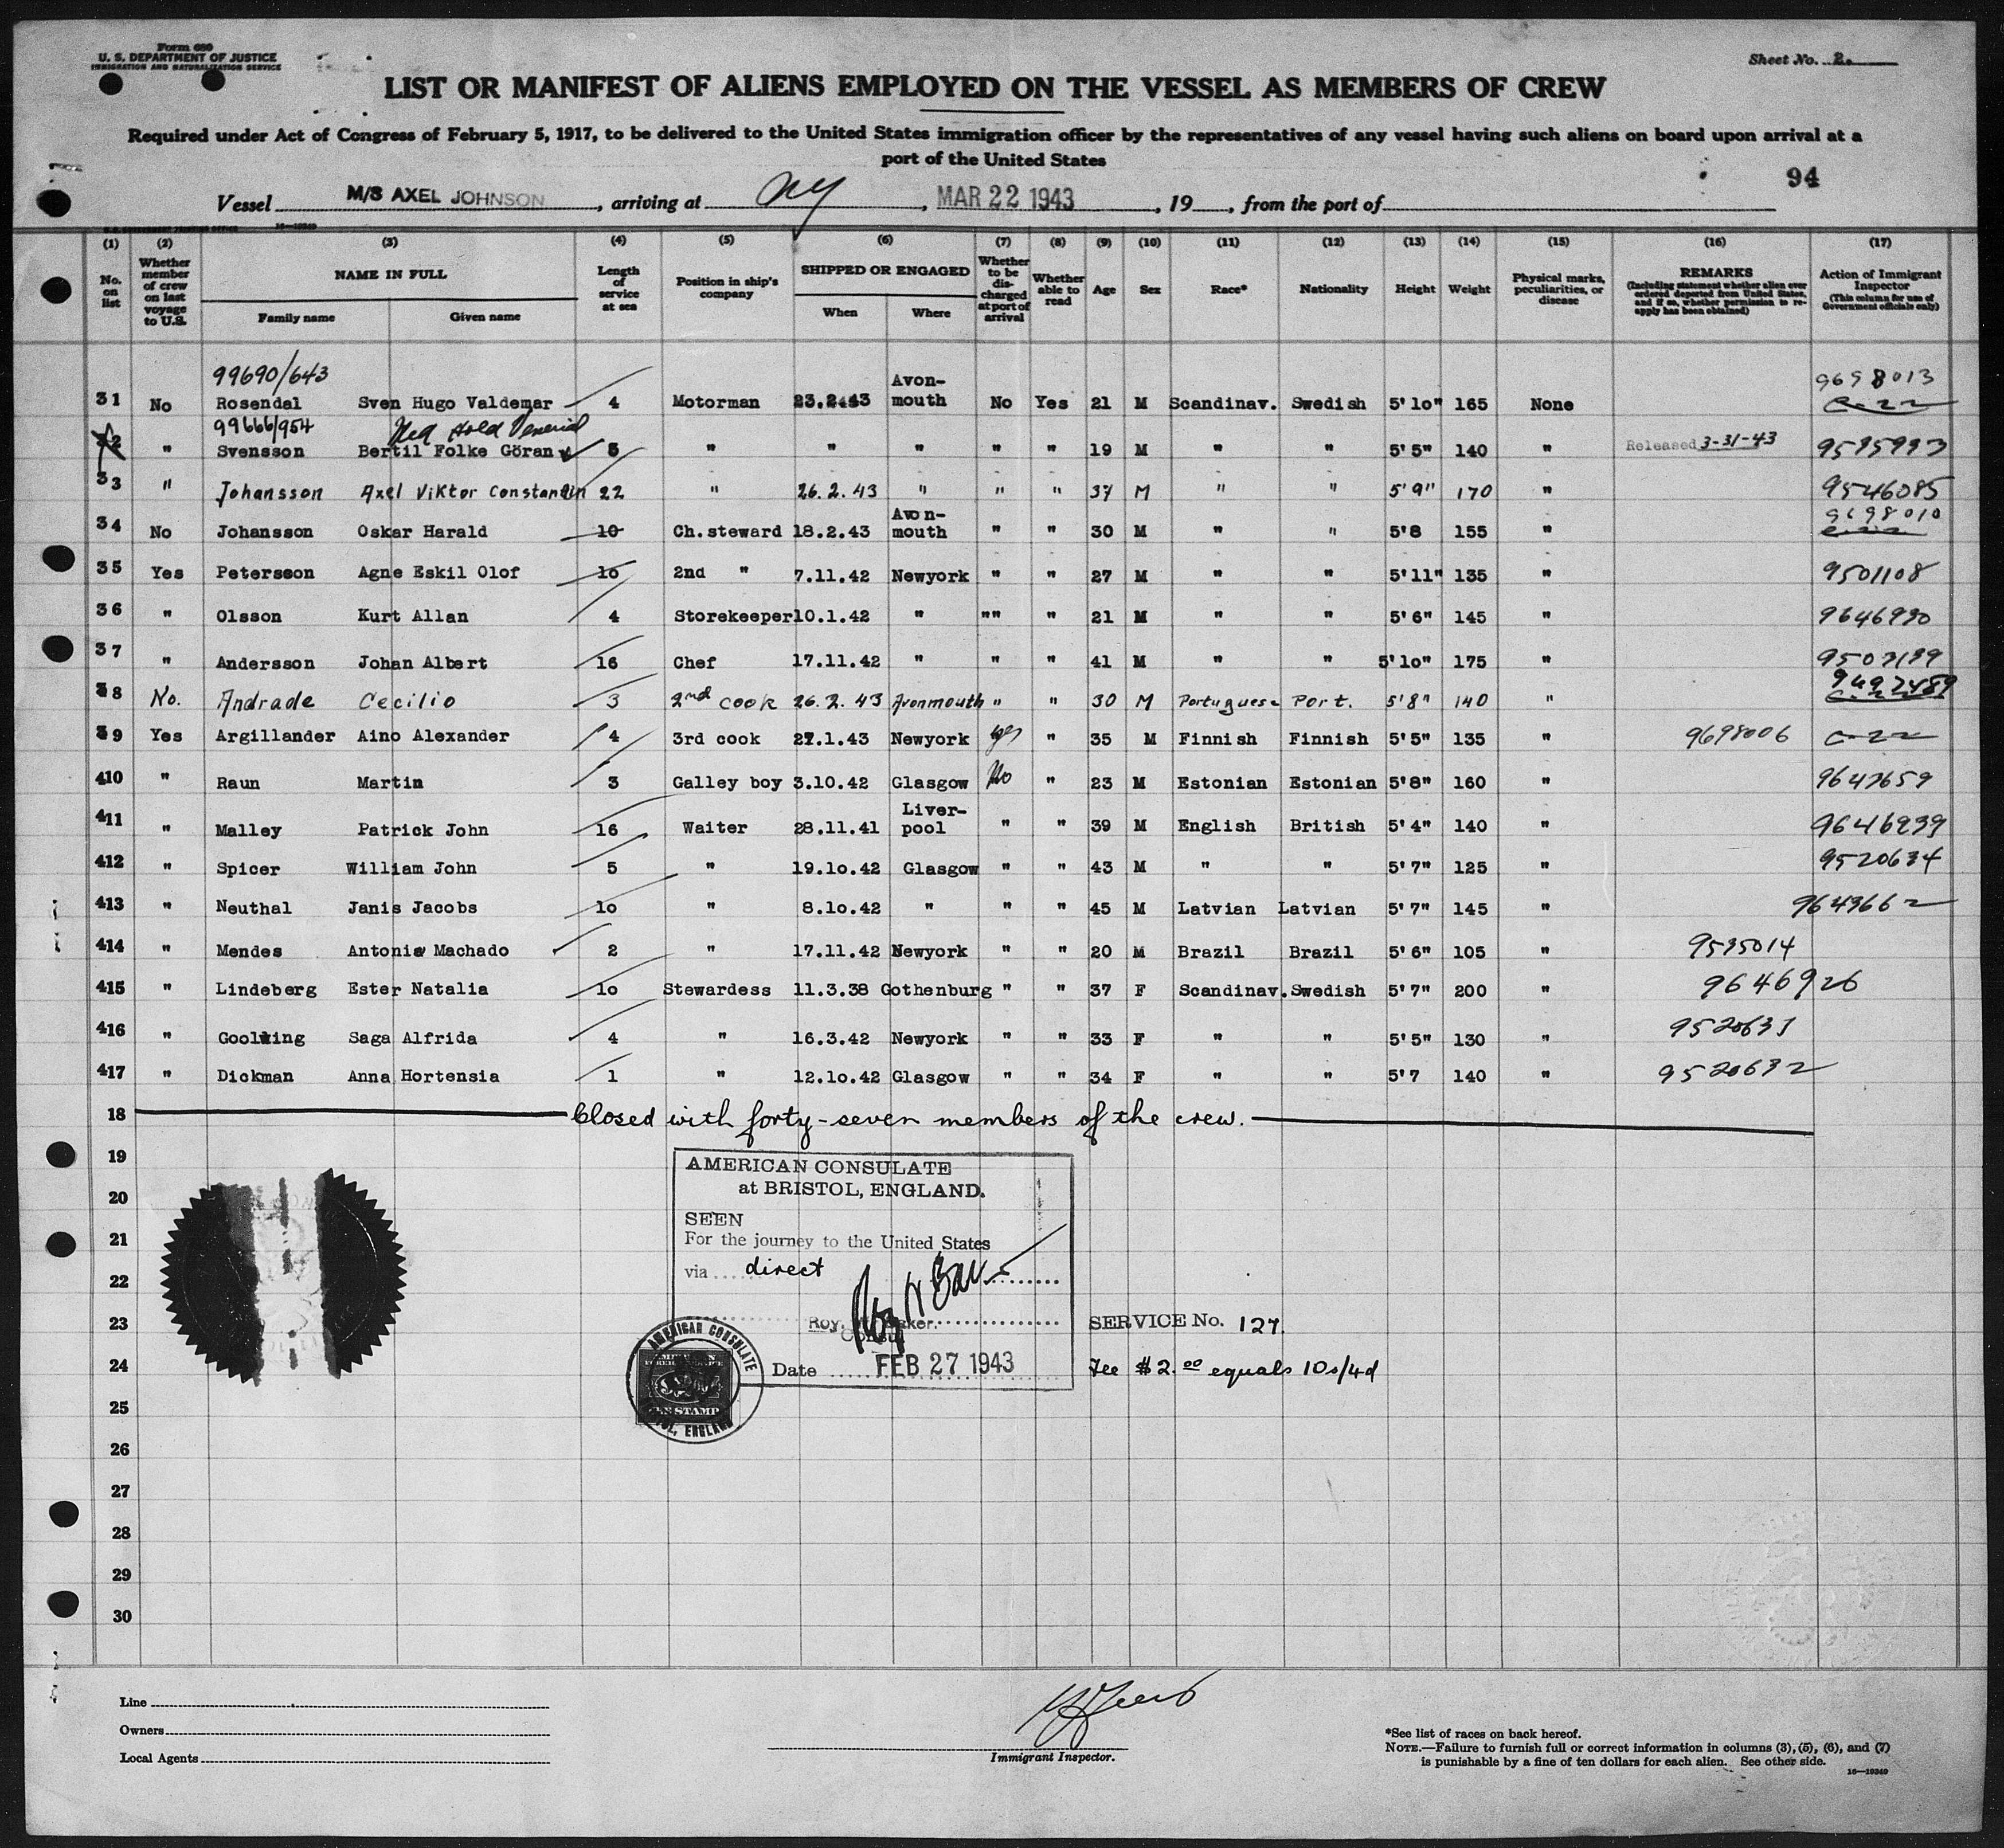 Form 680
U. S. DEPARTMENT OF JUSTICE
IMMIGRATION AND NATURALIZATION SERVICE
Sheet No. 2.
LIST OR MANIFEST OF ALIENS EMPLOYED ON THE VESSEL AS MEMBERS OF CREW
Required under Act of Congress of February 5, 1917, to be delivered to the United States immigration officer by the representatives of any vessel having such aliens on board upon arrival at a
port of the United States
94
Vessel M/S AXEL JOHNSON, arriving at NY, MAR 22 1943, 19, from the port of
(1) (2) (3) (4) (5) (6) (7) (8) (9) (10) (11) (12) (13) (14) (15) (16) (17)
No. on list
Whether member of crew on last voyage to U.S.
NAME IN FULL
Family name Given name
Length of service at sea
Position in ship's company
SHIPPED OR ENGAGED
When Where
Whether to be discharged at port of arrival
Whether able to read
Age
Sex
Race*
Nationality
Height
Weight
Physical marks, peculiarities, or disease
REMARKS
(Including statement whether alien ever ordered deported from United States, and if so, whether permission to reapply has been obtained)
Action of Immigrant Inspector
(This column for use of Government officials only)
99690/643 9698013
31 No Rosendal Sven Hugo Valdemar 4 Motorman 23.2.43 Avon-mouth No Yes 21 M Scandinav. Swedish 5'10" 165 None
99666/954 Med Hold Venerial
32 " Svensson Bertil Folke Göran 5 " " " " " 19 M " " 5'5" 140 " Released 3-31-43 9595993
33 " Johansson Axel Viktor Constantin 22 " 26.2.43 " " " 37 M " " 5'9" 170 " 9546085
34 No Johansson Oskar Harald 10 Ch. steward 18.2.43 Avon-mouth " " 30 M " " 5'8 155 " 9698010
35 Yes Petersson Agne Eskil Olof 10 2nd " 7.11.42 Newyork " " 27 M " " 5'11" 135 " 9501108
36 " Olsson Kurt Allan 4 Storekeeper 10.1.42 " "" " 21 M " " 5'6" 145 " 9646990
37 " Andersson Johan Albert 16 Chef 17.11.42 " " " 41 M " " 5'10" 175 "
38 No. Andrade Cecilio 3 2nd cook 26.2.43 Avonmouth " " 30 M Portuguese Port. 5'8" 140 "
39 Yes Argillander Aino Alexander 4 3rd cook 27.1.43 Newyork yes 35 M Finnish Finnish 5'5" 135 " 9698006 C-22
410 " Raun Martin 3 Galley boy 3.10.42 Glasgow No " 23 M Estonian Estonian 5'8" 160 " 9647659
411 " Malley Patrick John 16 Waiter 28.11.41 Liver-pool " " 39 M English British 5'4" 140 " 9646939
412 " Spicer William John 5 " 19.10.42 Glasgow " " 43 M " " 5'7" 125 " 9520634
413 " Neuthal Janis Jacobs 10 " 8.10.42 " " " 45 M Latvian Latvian 5'7" 145 " 9649662
414 " Mendes Antonio Machado 2 " 17.11.42 Newyork " " 20 M Brazil Brazil 5'6" 105 " 9595014
415 " Lindeberg Ester Natalia 10 Stewardess 11.3.38 Gothenburg " " 37 F Scandinav. Swedish 5'7" 200 " 9646926
416 " Goolking Saga Alfrida 4 " 16.3.42 Newyork " " 33 F " " 5'5" 130 " 9520633
417 " Dickman Anna Hortensia 1 " 12.10.42 Glasgow " " 34 F " " 5'7 140 " 9520632
18 Closed with forty-seven members of the crew.
19
20
21
22
23
24
25
26
27
28
29
30
AMERICAN CONSULATE
at BRISTOL, ENGLAND.
SEEN
For the journey to the United States
via direct
Roy W. Baker.
Consul
Date FEB 27 1943
SERVICE No. 127.
Fee $2.00 equals 10s/4d
AMERICAN CONSULATE
FEE STAMP
ENGLAND
Line
Owners
Local Agents
Immigrant Inspector.
*See list of races on back hereof.
NOTE.—Failure to furnish full or correct information in columns (3), (5), (6), and (7)
is punishable by a fine of ten dollars for each alien. See other side.
16—19340